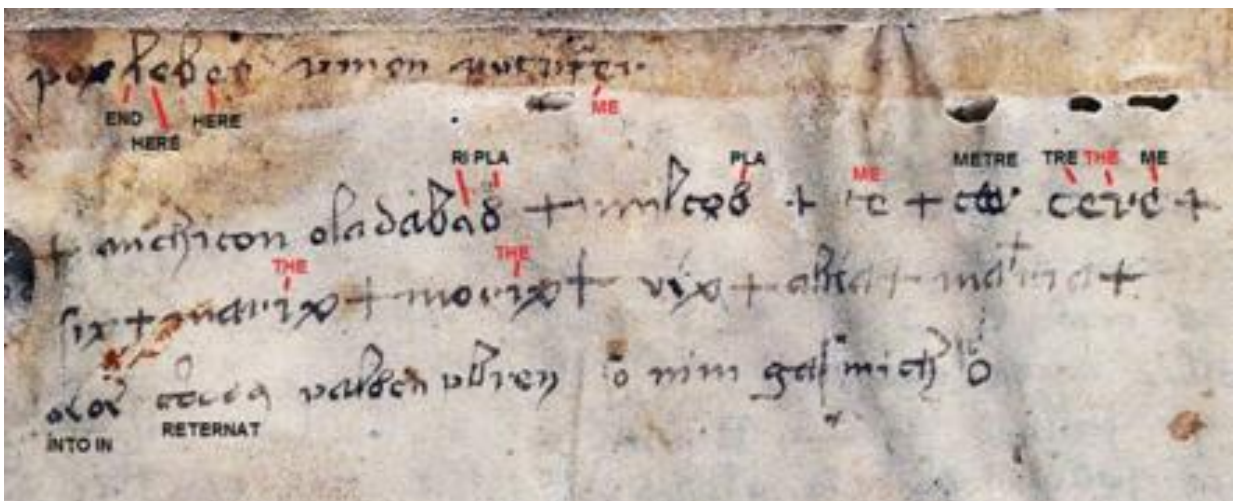 umen putrifer
END HERE ME
HERE
RI PLA PLA ME METRE TRE THE ME
+ anchiton oladabas + multos + te + cere +
THE THE
six + marix + morix + vix + abia + maria +
valsch ubren so nim gas mich o
INTO IN RETERNAT